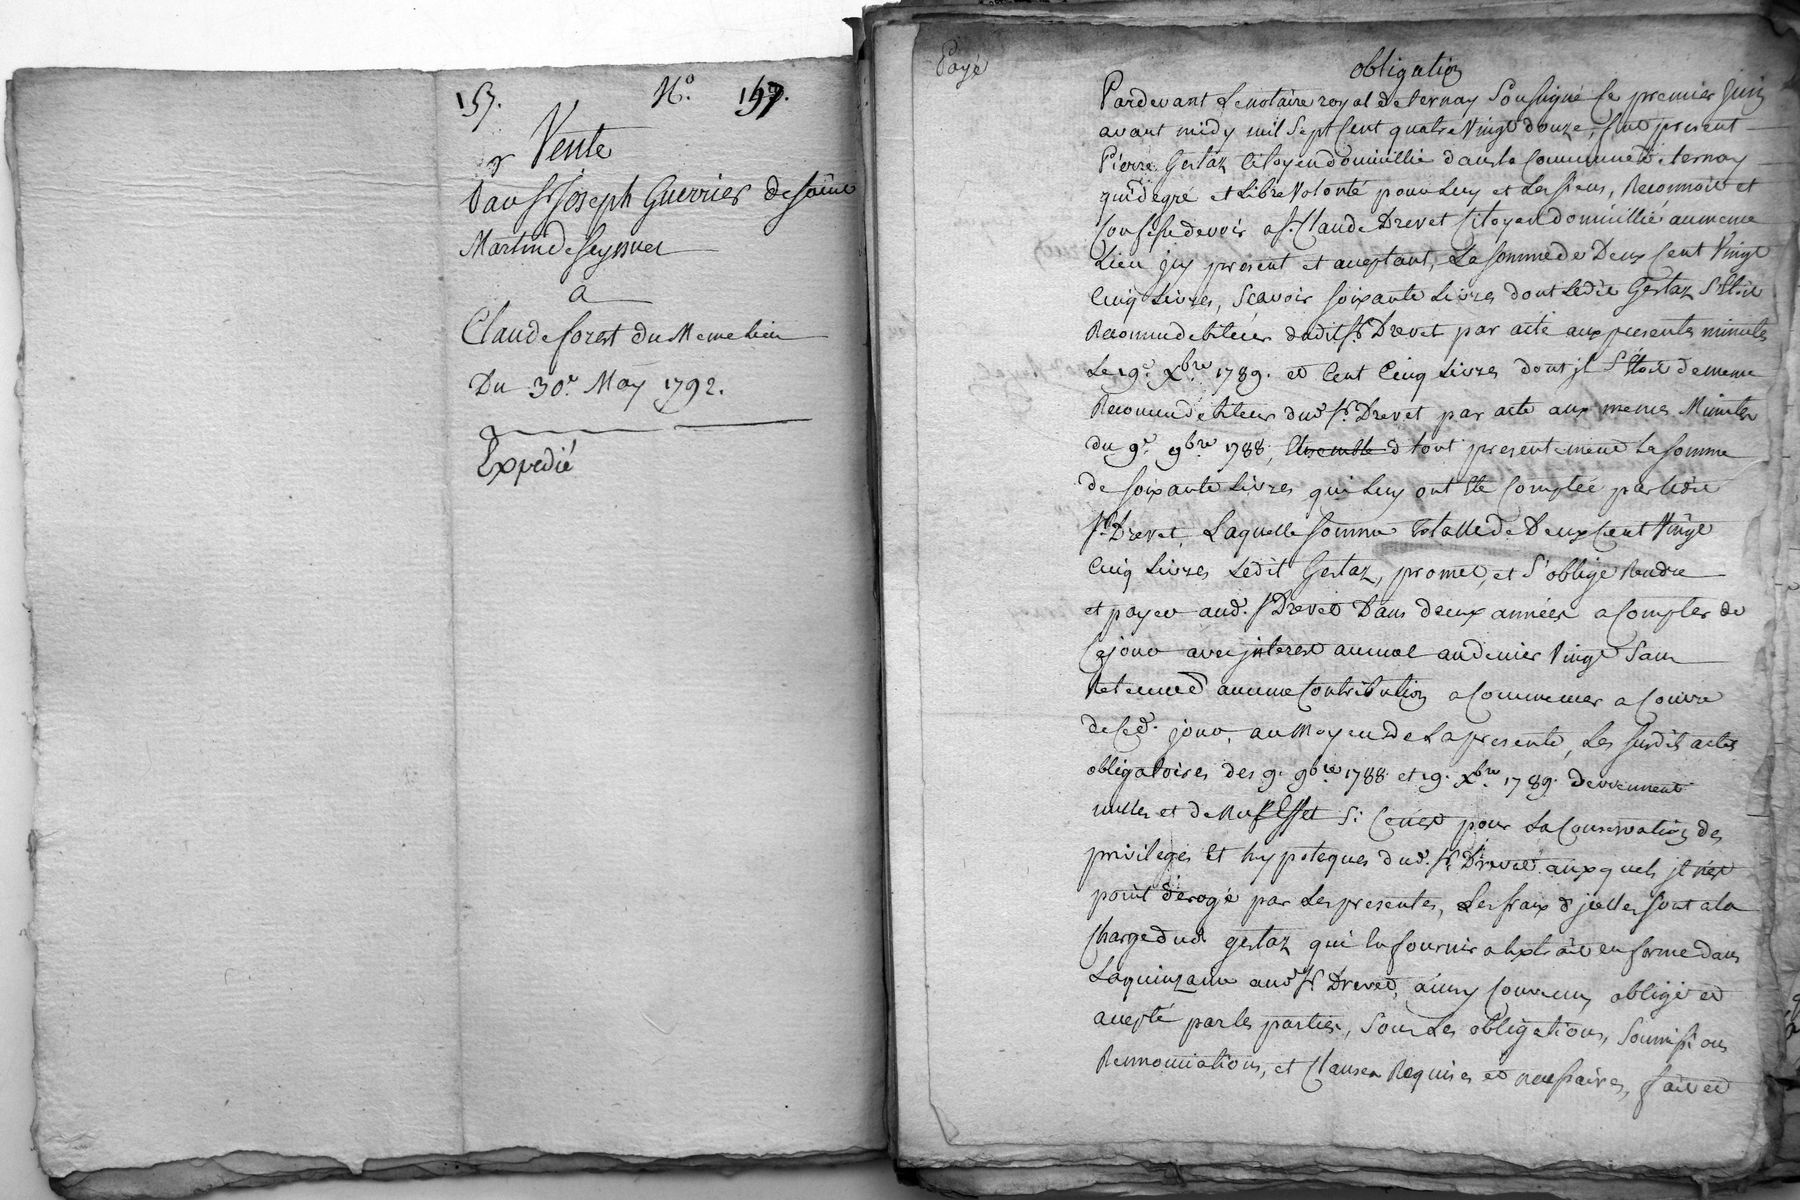 157. N.° 157.
Vente
Par Sr Joseph Guerrier de Saint
Martin de Seyssuel
a
Claude forest du Meme lieu
Du 30.e May 1792.
Expedié
Payé
obligation
Pardevant Le notaire royal de ternay Soussigné Le premier Juin
avant midy mil Sept Cent quatre Vingt douze, fut present
Pierre Gestaz Citoyen domicillié dans la Communeté ternay
qui de gré et Libre Volonté pour Luy et Les Siens, Reconnoit et
Confesse devoir a Sr. Claude Drevet Citoyen domicillié au meme
Lieu Jcy présent et aceptant, La somme de Deux Cent Vingt
Cinq Livres, Scavoir soixante Livres dont Ledit Gestaz S'Etoit
Reconnu debiteur dudit Sr Drevet par acte aux presentes minutes
Le 19.e Xbre 1789. et Cent Cinq Livres dont jl S'Etoit de meme
Reconnu debiteur dud Sr. Drevet par acte aux memes Minutes
du 9.e 9bre 1788, Ensemble d tout presentement La somme
de soixante Livres qui Luy ont Eté Comptée par ledit
Sr Drevet, Laquelle somme totalle de Deux Cent Vingt
Cinq Livres Ledit Gestaz, promet, et S'oblige Rendre
et payer aud. Sr Drevet Dans deux années a Compter de
Cejour avec jnterest annuel au denier Vingt Sans
Retenue d aucune Contribution a Commencer a Courir
de Ced. jour, au Moyen de La presente, Les susdits actes
obligatoires des 9. 9bre 1788 et 19. Xbre 1789. deviennent
nulles et de Nul Effet Si Ce n'est pour La Conservation des
privileges Et hypoteques dud. Sr. Drevet auxquels jl n'est
point derogé par Les presentes, Les fraix d jcelles sont a la
Charge dud gestaz qui En fournir a Extrait en forme dans
La quinzaine aud Sr Drevet, ainsy Convenu, obligé et
acepté par les parties, Sous Les obligations, Soumissions
Rennonciations, et Clauses Requises et necessaires, fait et